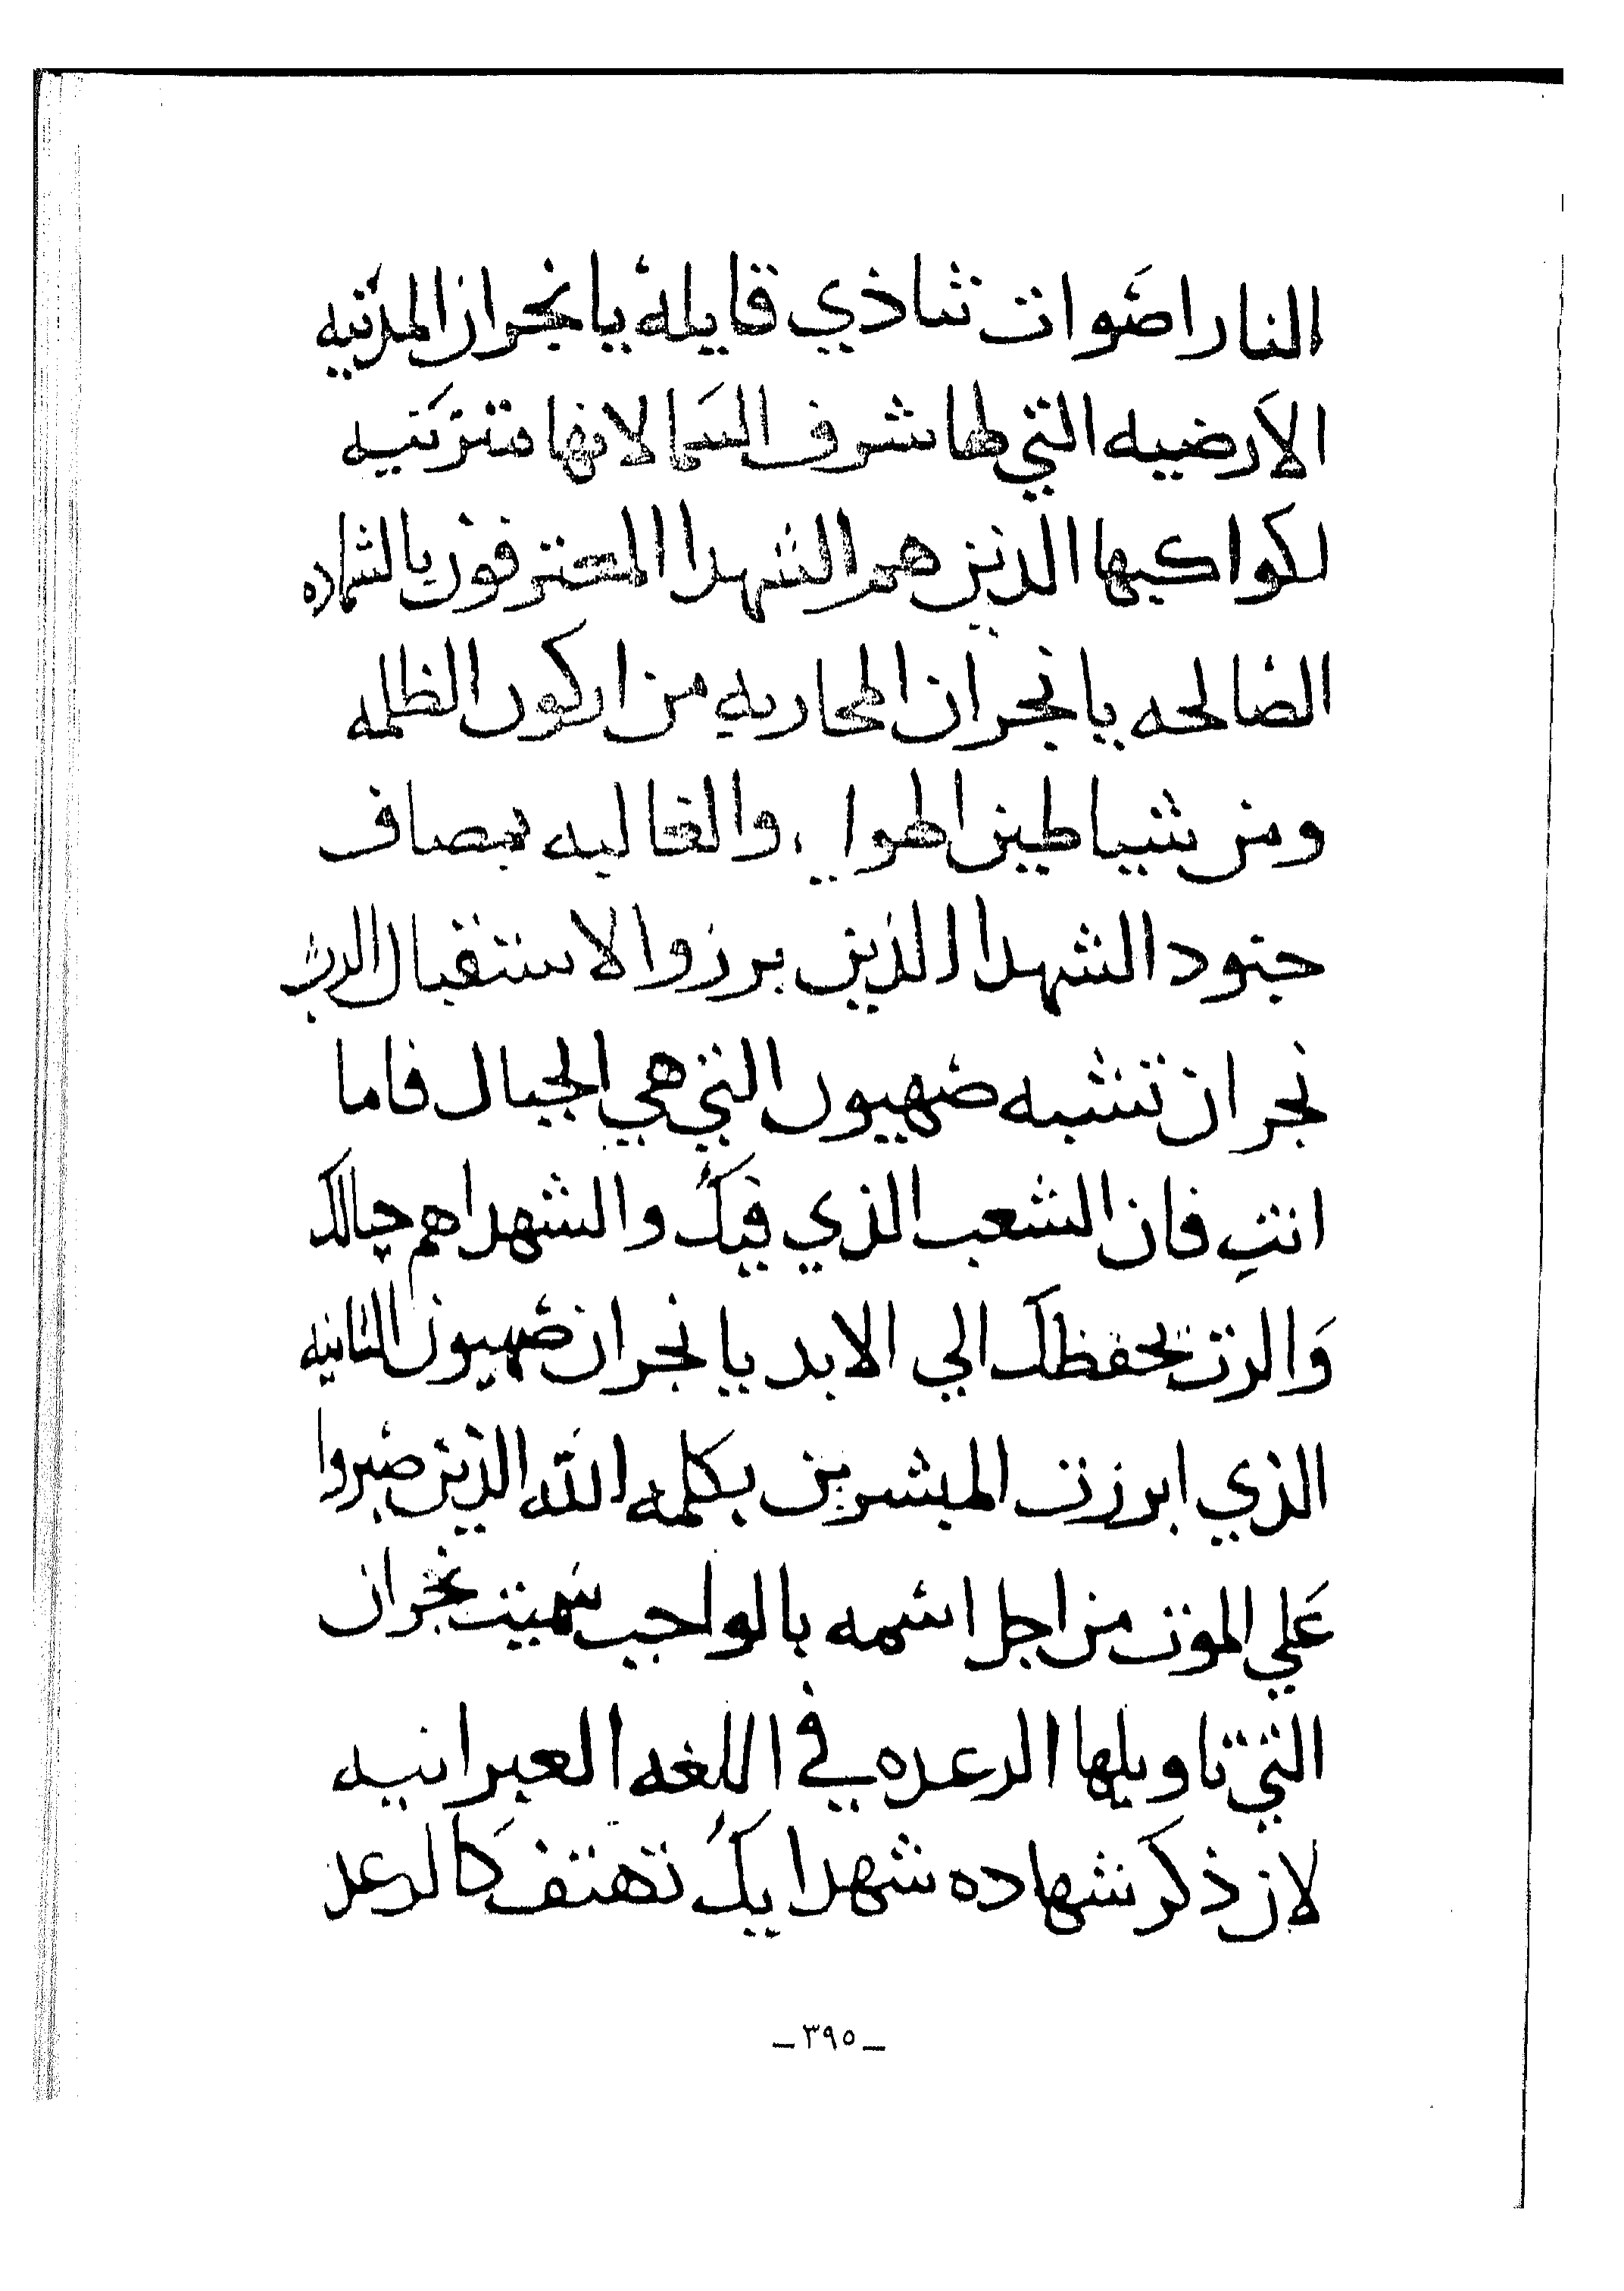 النار اصوات تناذي قايله يا نجران المدينه
الارضيه التي لها شرف السما لانها متزينه
لكواكبها الدين هم الشهدا المعترفون بالشهاده
الصالحه يا نجران المحاربه من اركون الظلمه
ومن شياطين الهوا، والغالبه بمصاف
جنود الشهدا الذين برزوا لاستقبال الرب
نجران تشبه صهيون التي هي الجبال فاما
انتِ فان الشعب الذي فيك والشهدا هم جبالك
والرب يحفظك الي الابد يا نجران صهيون الثانيه
الذي ابرزت المبشرين بكلمه الله الذين صبروا
علي الموت من اجل اسمه بالواجب سميت نجران
التي تاويلها الرعده في اللغه العبرانيه
لان ذكر شهاده شهدايك تهتف كالرعد
_ ٣٩٥ _